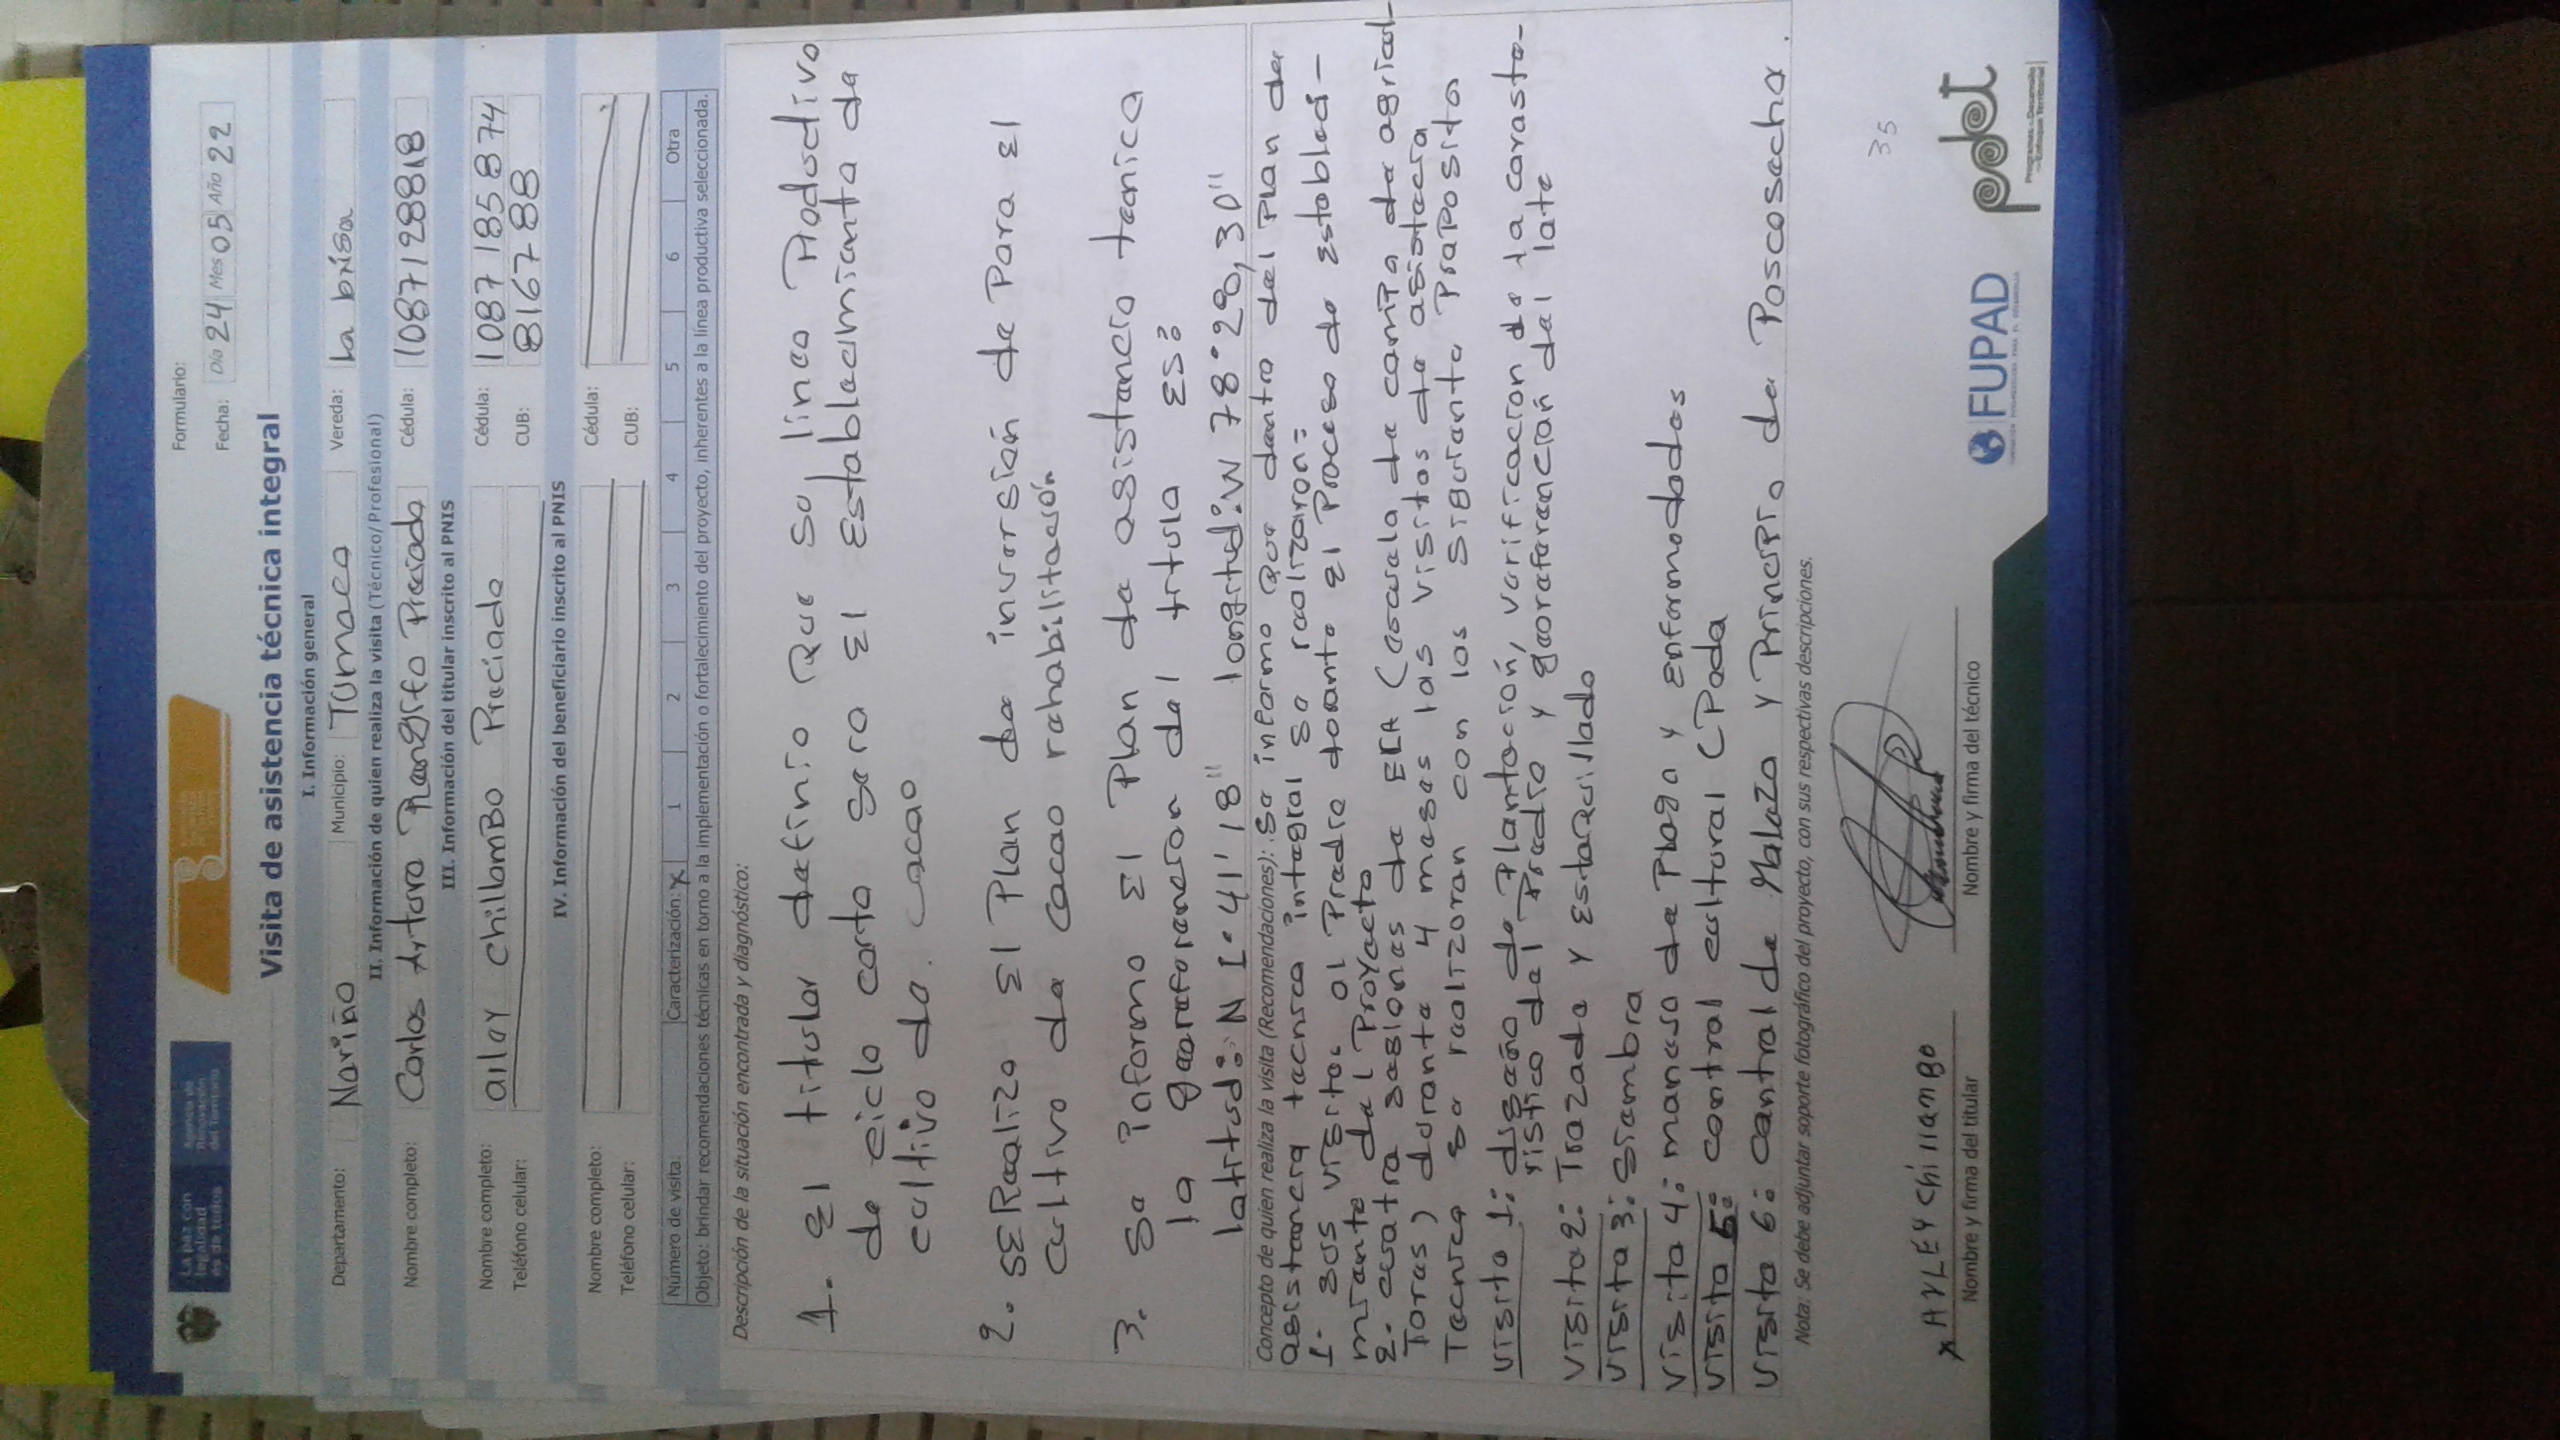 La paz con
legalidad
es de todos
Agencia de
Renovación
del Territorio
Formulario:
Fecha: Día 24 Mes 05 Año 22
Visita de asistencia técnica integral
I. Información general
Departamento: Nariño Municipio: Tumaco Vereda: La brisa
II. Información de quien realiza la visita (Técnico/Profesional)
Nombre completo: Carlos Arturo Preciado Cédula: 1087128818
III. Información del titular inscrito al PNIS
Nombre completo: ailay chillamBo Preciado Cédula: 1087185874
Teléfono celular: CUB: 816788
IV. Información del beneficiario inscrito al PNIS
Nombre completo: Cédula:
Teléfono celular: CUB:
Número de visita: Caracterización: X 1 2 3 4 5 6 Otra
Objeto: brindar recomendaciones técnicas en torno a la implementación o fortalecimiento del proyecto, inherentes a la línea productiva seleccionada.
Descripción de la situación encontrada y diagnóstico:
1. El titular definio Que su linea Productivo
de ciclo corto sera El Establecimiento de
cultivo de. Cacao
2. SE Realizo El Plan de inversión de Para El
cultivo de Cacao rehabilitación
3. Se informo El Plan de asistencia tecnica
la georeforencion del titula ES:
latitud: N 1° 41' 18" longitud: W 78° 28, 30"
Concepto de quien realiza la visita (Recomendaciones): Se informo Que dentro del Plan de
asistencia tecnica integral se realizaron=
1- sus visitas al Predio durante El Proceso de estableci-
miente del Proyecto
2- cuatro sesiones de ECA (escuela de campo de agricul-
tores) durante 4 meses las visitas de asistecia
Tecnica se realizaran con los siguiante Proposito
visita 1: diseño de Plantación, verificacion de la caraste-
ristico del Predio y georeferención del lote
visita 2: Trazado y Estaquillado
visita 3: siembra
visita 4: manejo de Plaga y enfermedades
visita 5: control cultural (Poda
visita 6: control de Maleza y Principio de Poscosecha.
Nota: Se debe adjuntar soporte fotográfico del proyecto, con sus respectivas descripciones.
35
x AYLEY Chillambo
Nombre y firma del titular
Nombre y firma del técnico
FUPAD
pdet
Programas de Desarrollo
con Enfoque Territorial